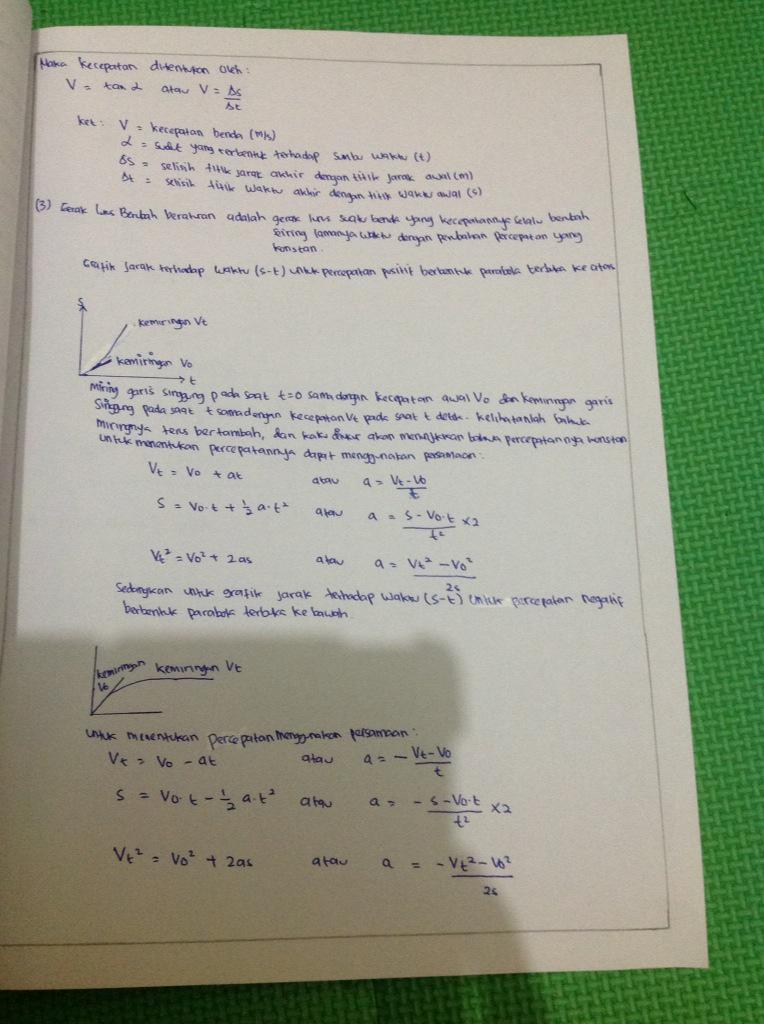 Maka kecepatan ditentukan oleh :
V = tan α atau V = Δs/Δt
ket : V = kecepatan benda (m/s)
α = sudut yang terbentuk terhadap sumbu waktu (t)
Δs = selisih titik jarak akhir dengan titik jarak awal (m)
Δt = selisih titik waktu akhir dengan titik waktu awal (s)
(3) Gerak lurus Berubah beraturan adalah gerak lurus suatu benda yang kecepatannya selalu berubah
seiring lamanya waktu dengan perubahan percepatan yang
konstan.
Grafik jarak terhadap waktu (s-t) untuk percepatan positif berbentuk parabola terbuka ke atas
s
kemiringan Vt
kemiringan Vo
t
Miring garis singgung pada saat t=0 sama dengan kecepatan awal Vo dan kemiringan garis
singgung pada saat t sama dengan kecepatan Vt pada saat t detik. Kelihatanlah bahwa
miringnya terus bertambah, dan kalau diukur akan menunjukkan bahwa percepatannya konstan
untuk menentukan percepatannya dapat menggunakan persamaan :
Vt = Vo + at atau a = Vt - Vo/t
S = Vo.t + 1/2 a.t² atau a = S - Vo.t/t² x2
Vt² = Vo² + 2as atau a = Vt² - Vo²/2s
Sedangkan untuk grafik jarak terhadap waktu (s-t) untuk percepatan negatif
berbentuk parabola terbuka ke bawah.
kemiringan kemiringan Vt
Vo
untuk menentukan percepatan menggunakan persamaan :
Vt = Vo - at atau a = - Vt - Vo/t
S = Vo.t - 1/2 a.t² atau a = - S - Vo.t/t² x2
Vt² = Vo² + 2as atau a = - Vt² - Vo²/2s